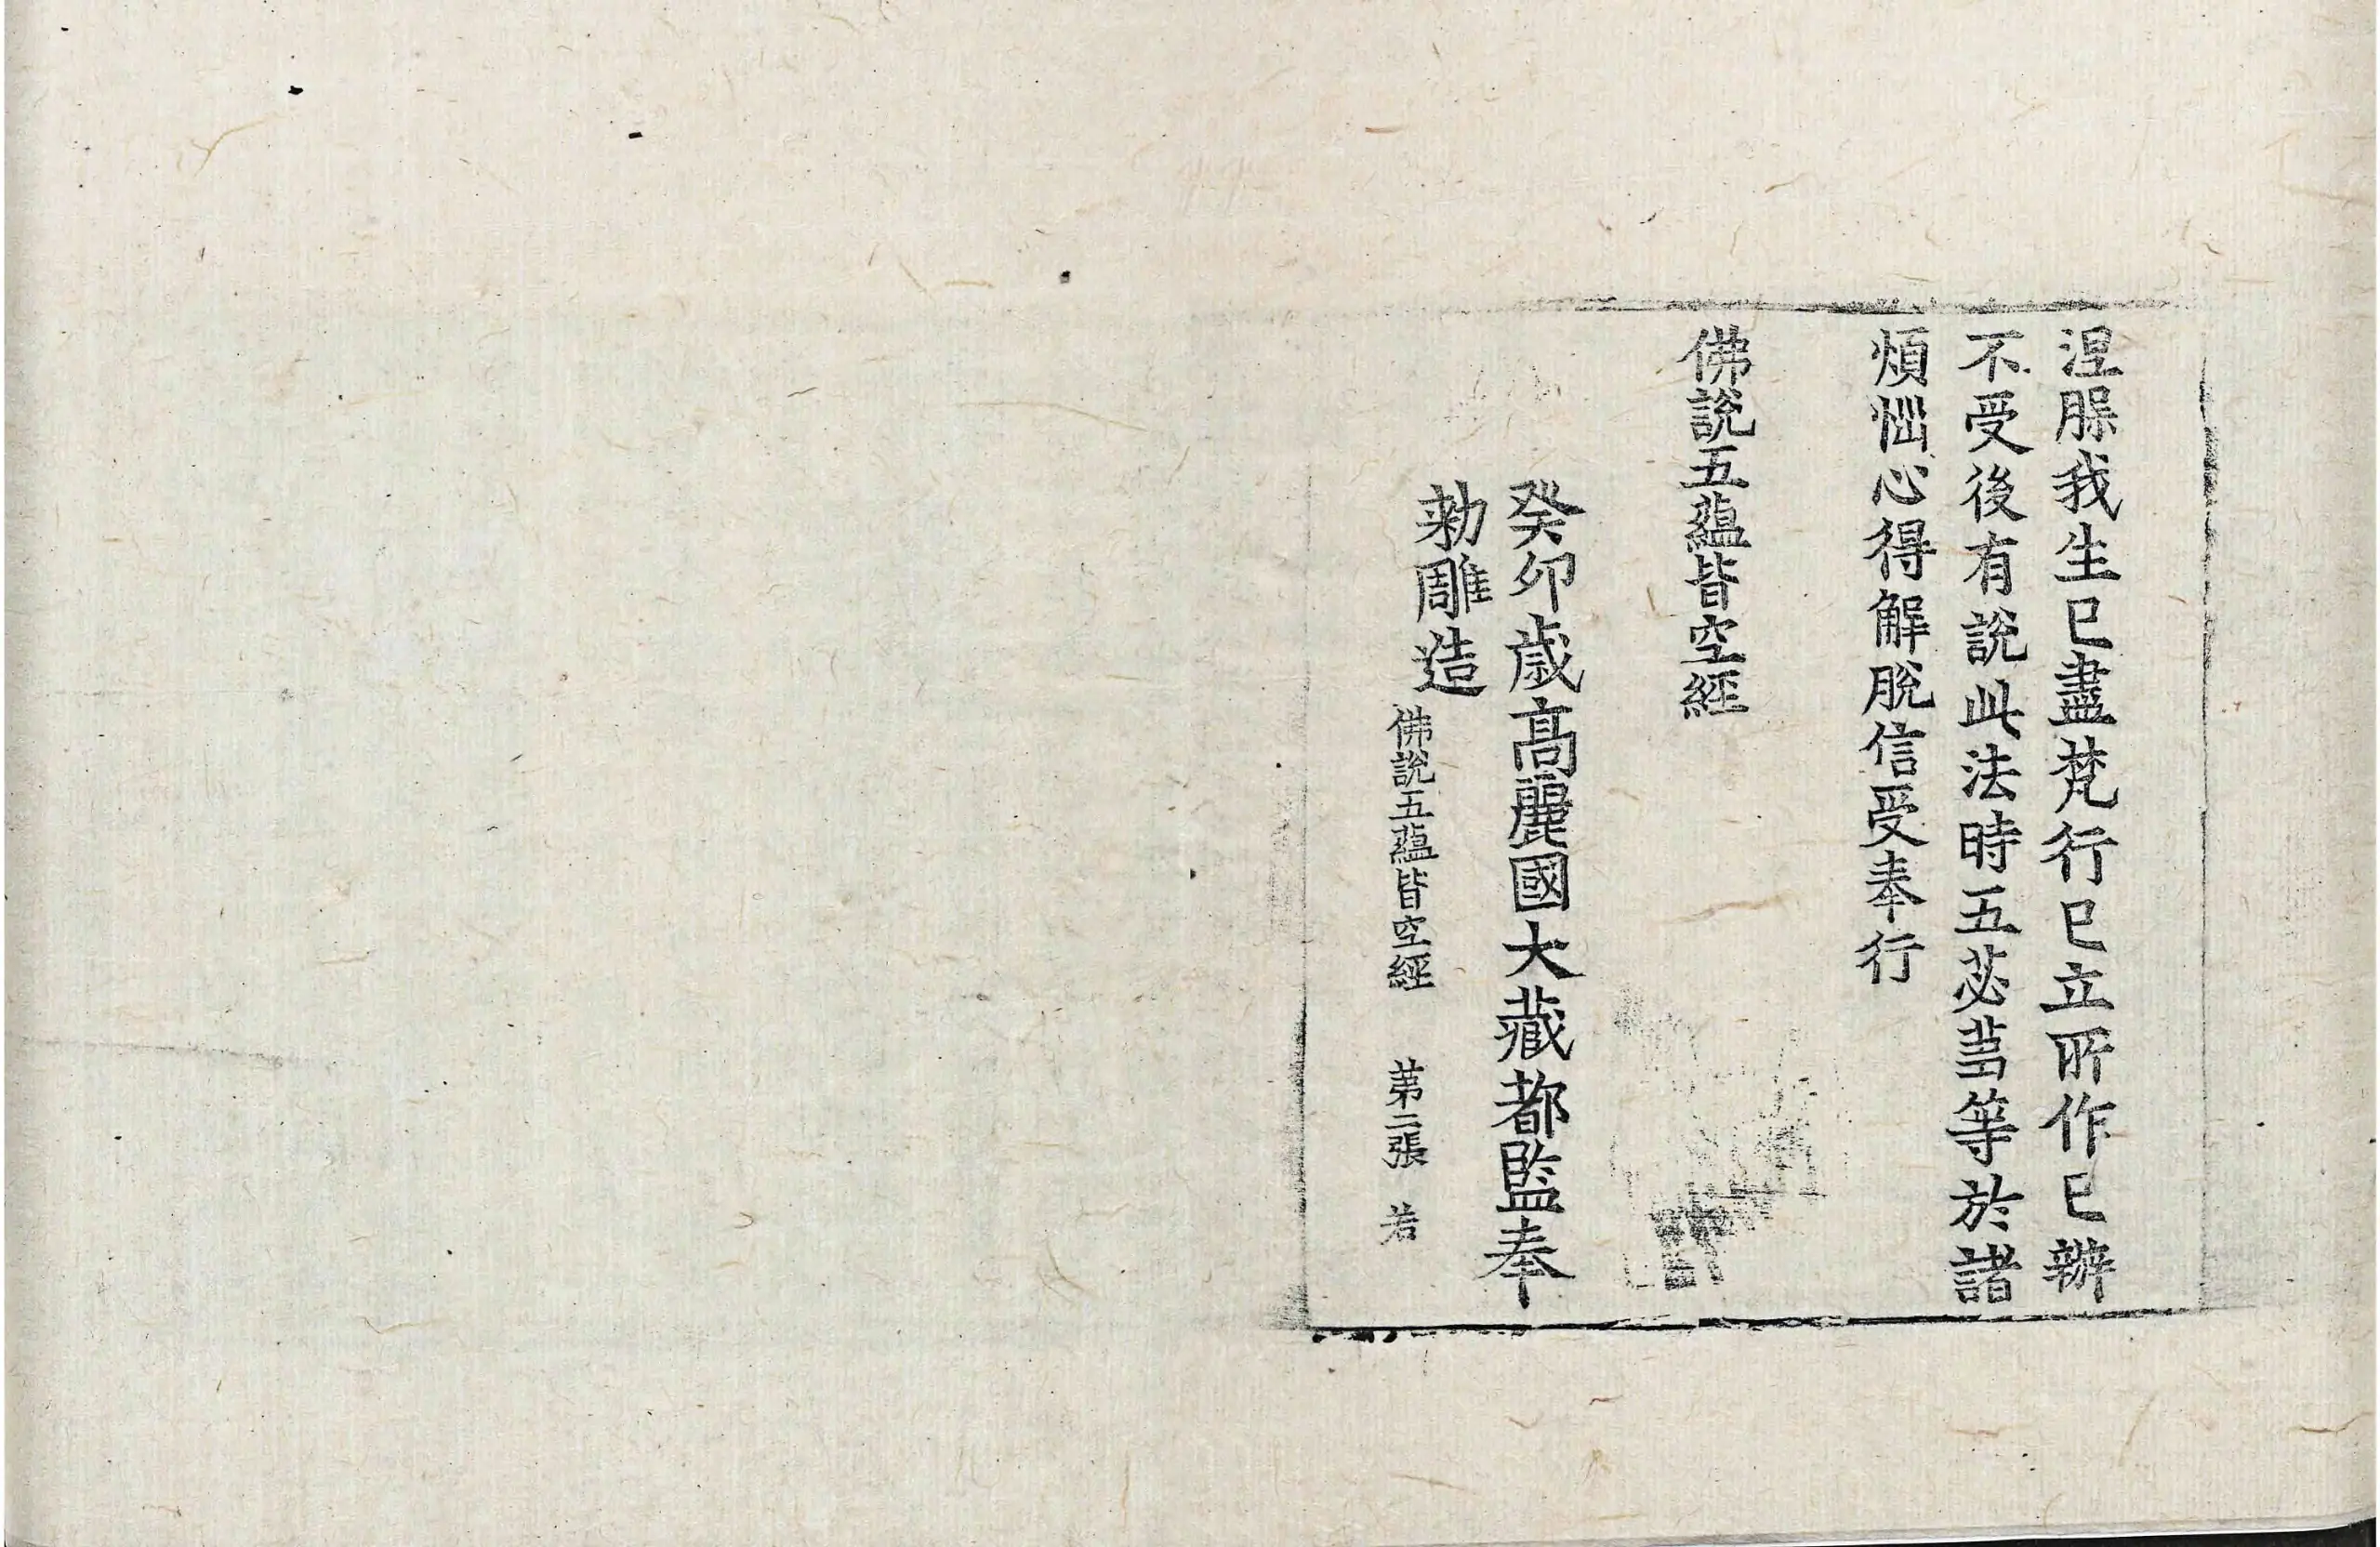 涅脲我生已盡梵行已立所作已辦
不受後有說此法時五苾蒭等於諸
煩惱心得解脫信受奉行
佛說五蘊皆空經
癸卯歲高麗國大藏都監奉
勅雕造
佛說五蘊皆空經 第二張 若